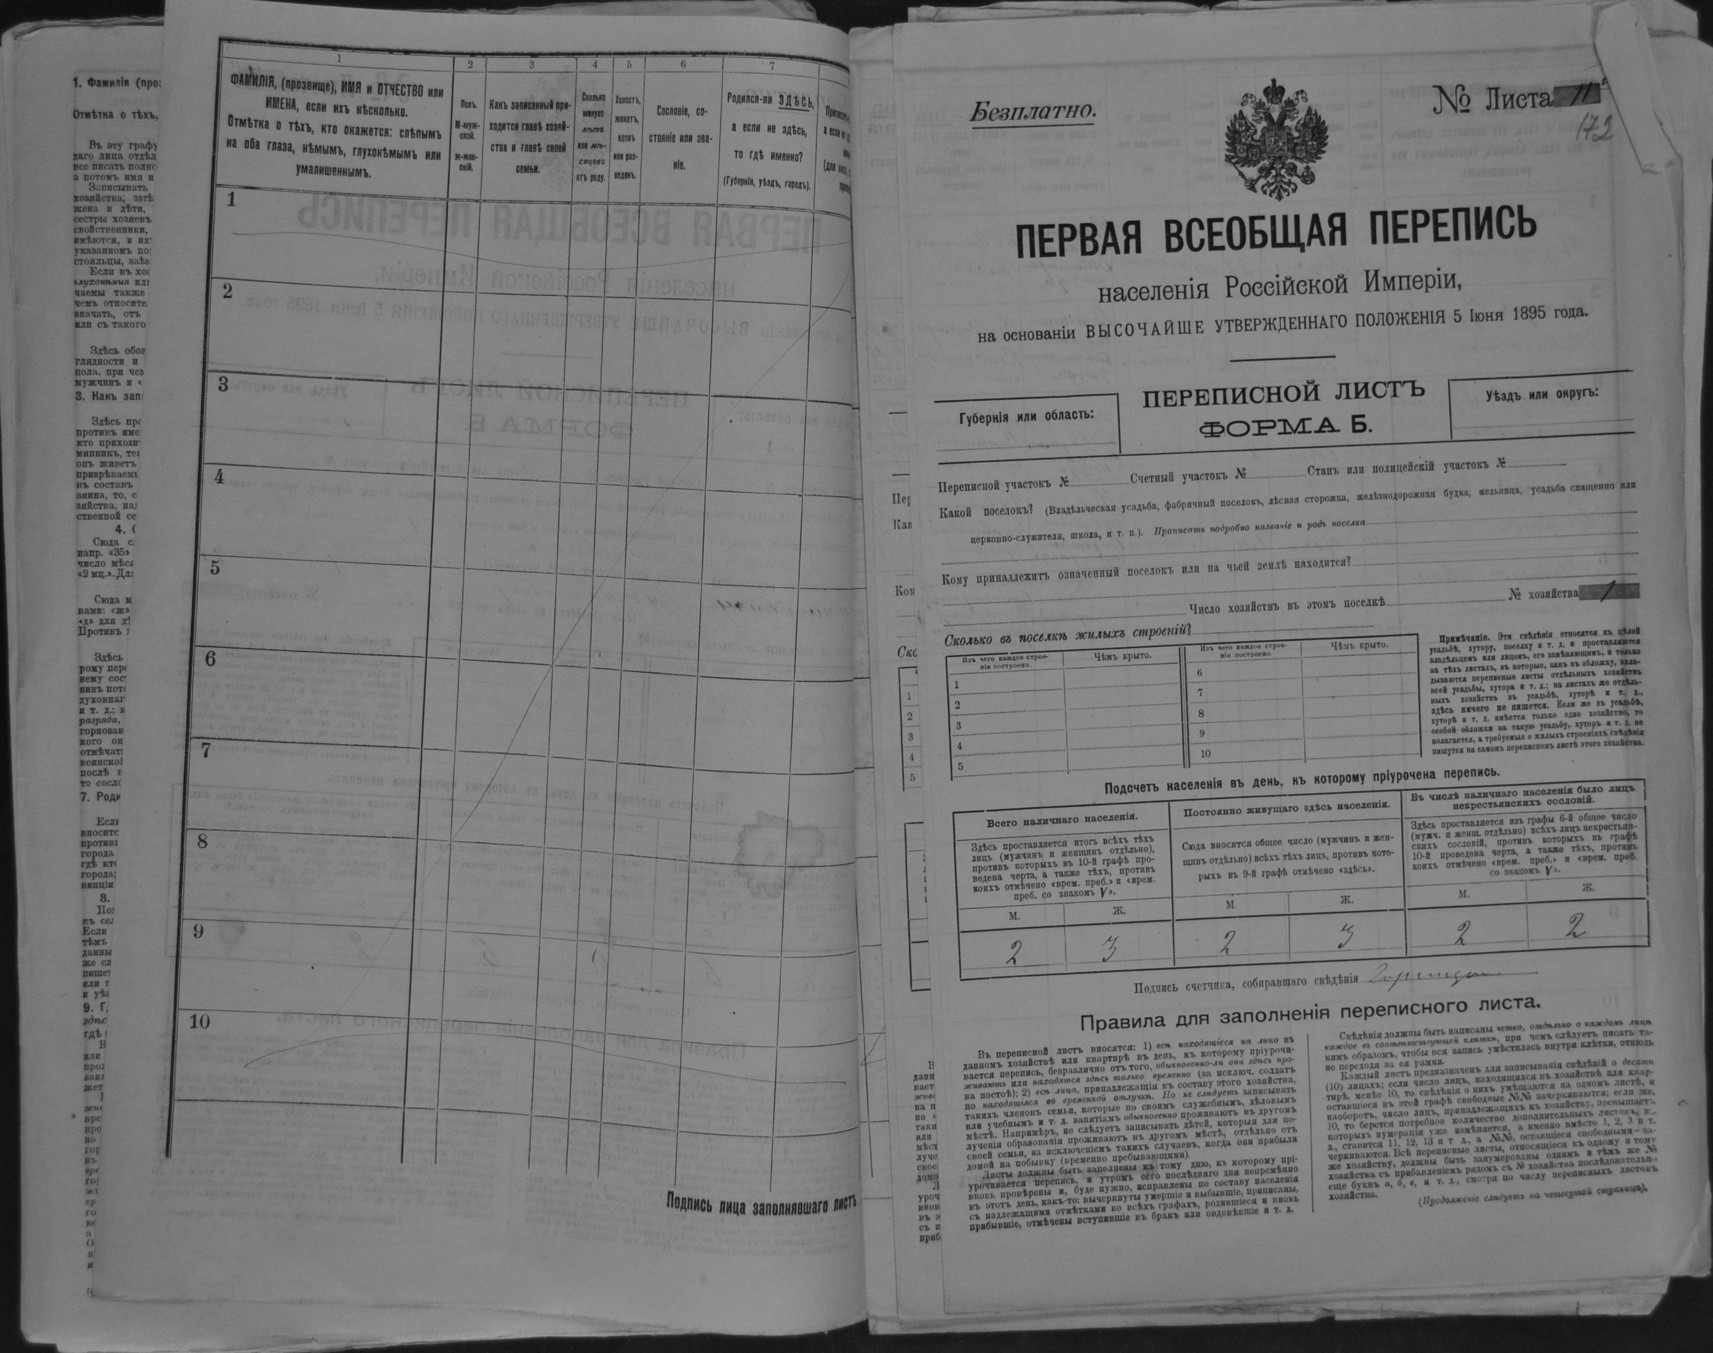 1 2 3 4 5 6 7
ФАМИЛІЯ, (прозвище), ИМЯ и ОТЧЕСТВО или
ИМЕНА, если ихъ нѣсколько.
Отмѣтка о тѣхъ, кто окажется: слѣпымъ
на оба глаза, нѣмымъ, глухонѣмымъ или
умалишеннымъ.
Полъ.
М-муж-
ской.
ж-жен-
скій.
Какъ записанный при-
ходится главѣ хозяй-
ства и главѣ своей
семьи.
Сколько
минуло
лѣтъ
или мѣ-
сяцевъ
отъ роду.
Холостъ,
женатъ,
вдовъ
или раз-
веденъ.
Сословіе, со-
стояніе или зва-
ніе.
Родился-ли ЗДѢСЬ,
а если не здѣсь,
то гдѣ именно?
(Губернія, уѣздъ, городъ).
1
2
3
4
5
6
7
8
9
10
Подпись лица заполнявшаго листъ
Безплатно.
№ Листа 11
172
ПЕРВАЯ ВСЕОБЩАЯ ПЕРЕПИСЬ
населенія Россійской Имперіи,
на основаніи ВЫСОЧАЙШЕ УТВЕРЖДЕННАГО ПОЛОЖЕНІЯ 5 Іюня 1895 года.
Губернія или область:
ПЕРЕПИСНОЙ ЛИСТЪ
ФОРМА Б.
Уѣздъ или округъ:
Переписной участокъ № Счетный участокъ № Станъ или полицейскій участокъ №
Какой поселокъ? (Владѣльческая усадьба, фабричный поселокъ, лѣсная сторожка, желѣзнодорожная будка, мельница, усадьба священно или
церковно-служителя, школа, и т. п.). Прописать подробно названіе и родъ поселка
Кому принадлежитъ означенный поселокъ или на чьей землѣ находится?
Число хозяйствъ въ этомъ поселкѣ № хозяйства 1
Сколько въ поселкѣ жилыхъ строеній?
Изъ чего каждое строе-
ніе построено.
Чѣмъ крыто.
Изъ чего каждое строе-
ніе построено.
Чѣмъ крыто.
1 6
2 7
3 8
4 9
5 10
Примѣчаніе. Эти свѣдѣнія относятся къ цѣлой
усадьбѣ, хутору, поселку и т. д. и проставляются
владѣльцемъ или лицомъ, его замѣняющимъ, и только
на тѣхъ листахъ, въ которые, какъ въ обложку, вкла-
дываются переписные листы отдѣльныхъ хозяйствъ
всей усадьбы, хутора и т. д.; на листахъ же отдѣль-
ныхъ хозяйствъ въ усадьбѣ, хуторѣ и т. д.,
здѣсь ничего не пишется. Если же въ усадьбѣ,
хуторѣ и т. д. имѣется только одно хозяйство, то
особой обложки на такую усадьбу, хуторъ и т. д. не
полагается, а требуемыя о жилыхъ строеніяхъ свѣдѣнія
пишутся на самомъ переписномъ листѣ этого хозяйства.
Подсчетъ населенія въ день, къ которому пріурочена перепись.
Всего наличнаго населенія.
Здѣсь проставляется итогъ всѣхъ тѣхъ
лицъ (мужчинъ и женщинъ отдѣльно),
противъ которыхъ въ 10-й графѣ про-
ведена черта, а также тѣхъ, противъ
коихъ отмѣчено «врем. преб.» и «врем.
преб. со знакомъ V».
Постоянно живущаго здѣсь населенія.
Сюда вносится общее число (мужчинъ и жен-
щинъ отдѣльно) всѣхъ тѣхъ лицъ, противъ кото-
рыхъ въ 9-й графѣ отмѣчено «здѣсь».
Въ числѣ наличнаго населенія было лицъ
некрестьянскихъ сословій.
Здѣсь проставляется изъ графы 6-й общее число
(мужч. и женщ. отдѣльно) всѣхъ лицъ некрестьян-
скихъ сословій, противъ которыхъ въ графѣ
10-й проведена черта, а также тѣхъ, противъ
коихъ отмѣчено «врем. преб.» и «врем. преб.
со знакомъ V».
М. Ж. М. Ж. М. Ж.
2 3 2 3 2 2
Подпись счетчика, собиравшаго свѣдѣнія
Правила для заполненія переписного листа.
Въ переписной листъ вносятся: 1) всѣ находящіеся на лицо въ
данномъ хозяйствѣ или квартирѣ въ день, къ которому пріурочи-
вается перепись, безразлично отъ того, обыкновенно-ли они здѣсь про-
живаютъ или находятся здѣсь только временно (за исключ. солдатъ
на постоѣ); 2) всѣ лица, принадлежащія къ составу этого хозяйства,
но находящіяся во временной отлучкѣ. Но не слѣдуетъ записывать
такихъ членовъ семьи, которые по своимъ служебнымъ, дѣловымъ
или учебнымъ и т. д. занятіямъ обыкновенно проживаютъ въ другомъ
мѣстѣ. Напримѣръ, не слѣдуетъ записывать дѣтей, которыя для по-
лученія образованія проживаютъ въ другомъ мѣстѣ, отдѣльно отъ
своей семьи, за исключеніемъ такихъ случаевъ, когда они прибыли
домой на побывку (временно пребывающими).
Листы должны быть заполнены къ тому дню, къ которому прі-
урочивается перепись, и утромъ сего послѣдняго дня непремѣнно
вновь провѣрены и, буде нужно, исправлены по составу населенія
въ этотъ день, какъ-то: вычеркнуты умершіе и выбывшіе, приписаны,
съ надлежащими отмѣтками во всѣхъ графахъ, родившіеся и вновь
прибывшіе, отмѣчены вступившіе въ бракъ или овдовѣвшіе и т. д.
Свѣдѣнія должны быть написаны четко, отдѣльно о каждомъ лицѣ
каждое въ соотвѣтствующей клѣткѣ, при чемъ слѣдуетъ писать та-
кимъ образомъ, чтобы вся запись умѣстилась внутри клѣтки, отнюдь
не переходя за ея рамки.
Каждый листъ предназначенъ для записыванія свѣдѣній о десяти
(10) лицахъ; если число лицъ, находящихся въ хозяйствѣ или квар-
тирѣ, менѣе 10, то свѣдѣнія о нихъ умѣщаются на одномъ листѣ, и
оставшіеся въ этой графѣ свободные №№ зачеркиваются; если же,
наоборотъ, число лицъ, принадлежащихъ къ хозяйству, превышаетъ
10, то берется потребное количество дополнительныхъ листовъ, въ
которыхъ нумерація уже измѣняется, а именно вмѣсто 1, 2, 3 и т.
д., ставится 11, 12, 13 и т д., а №№, оставшіеся свободными—за-
черкиваются. Всѣ переписные листы, относящіеся къ одному и тому
же хозяйству, должны быть занумерованы однимъ и тѣмъ же №
хозяйства съ прибавленіемъ рядомъ съ № хозяйства послѣдовательно
еще буквъ а, б, в, и т. д., смотря по числу переписныхъ листовъ
хозяйства.
(Продолженіе слѣдуетъ на четвертой страницѣ).